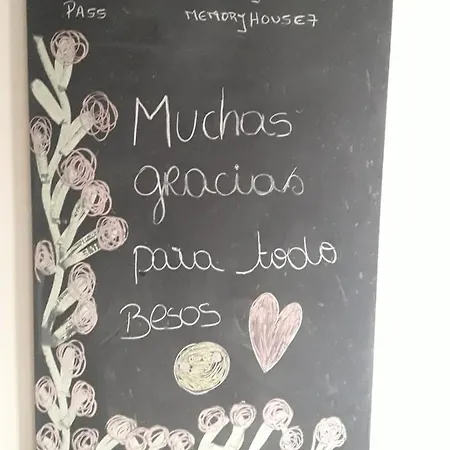 PASS MEMORYHOUSE7
Muchas
gracias
para todo
Besos